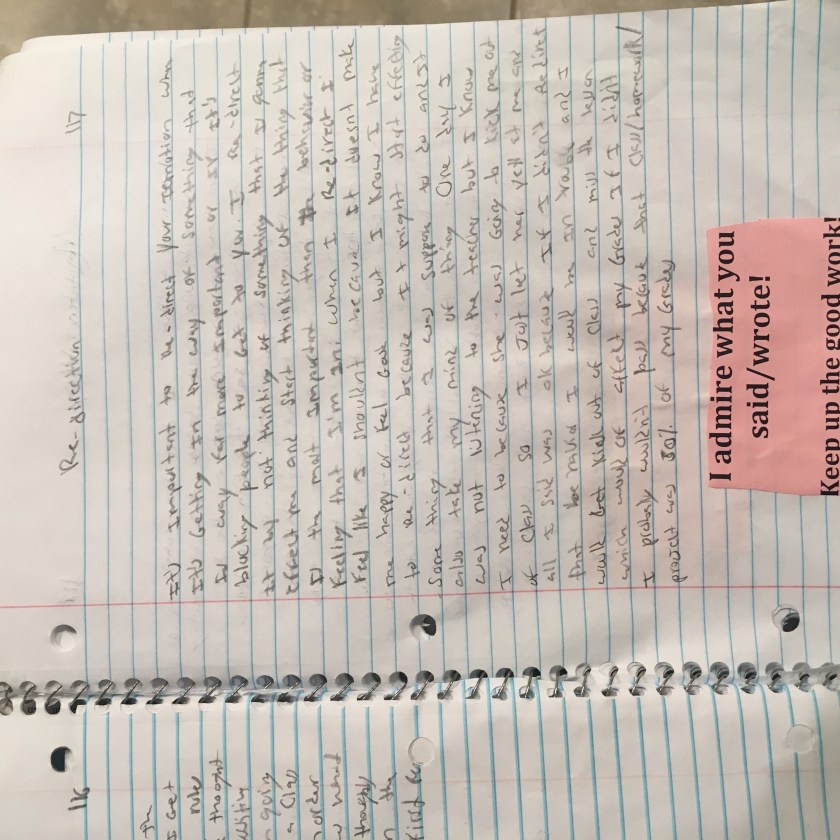 117
Re-direction
It's Important to Re-direct your Iemotion when
It's Getting In the way of something that
Is way far more Important or If It's
blocking people to Get to you. I Re-direct
It by not thinking of something that Is gonna
Effect me and start thinking of the thing that
Is the most Important than the behavior or
Feeling that I'm In. when I Re-direct I
Feel like I shouldn't because It doesnt make
me happy or Feel Good but I know I have
to Re-direct because It might start effecting
Some thing that I was suppose to do and It
also take my mine of thing One day I
was not listening to the teacher but I know
I need to because she was Going to kick me out
of Class so I Just let her yell at me and
all I said was ok because If I didn't Redirect
that behavior I would be In trouble and I
would Get kick out of Class and miss the lesson
which would of affect my Grade If I didn't
I probaly wouldn't pass because that Class/homework/
project was 50% of my Grades
I admire what you
said/wrote!
Keep up the good work!
116
I Get
rule
thought
writing
going
a Class
order
what
thought
the
First